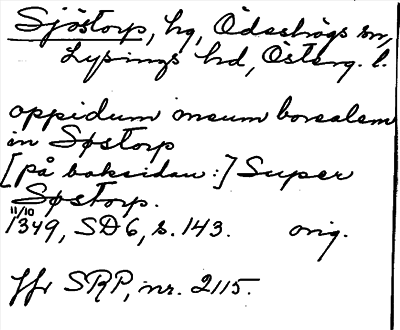 Sjöstorp, hg, Ödeshögs sn,
Lysings hd, Österg. l.
oppidum meum borealem
in Søstorp
[på baksidan:] Super
Søstorp.
11/10
1349, SD6, s. 143. orig.
Jfr SRP, nr. 2115.